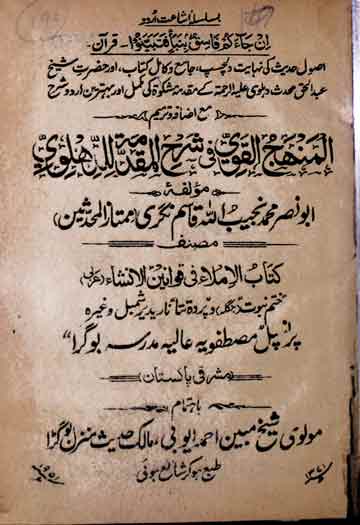 بسلسلۂ اشاعت اردو
اِنْ جَاءَكُمْ فَاسِقٌ بِنَبَأٍ فَتَبَيَّنُوْا۔ قرآن۔
اصول حدیث کی نہایت دلچسپ، جامع و کامل کتاب، اور حضرت شیخ
عبدالحق محدث دہلوی علیہ الرحمۃ کے مقدمہ مشکوٰۃ کی مکمل اور بہترین اردو شرح
مع اضافہ و ترمیم
المنهج القوی فی شرح المقدمة للدهلوی
مؤلفہ
ابو نصر محمد نجیب اللہ قاسم نگری (ممتاز المحدثین)
مصنف
کتاب الاملاء فی قوانین الانشاء (عربی)
ختم نبوت (بنگلہ) و پردہ وغیرہ
پرنسپل مصطفویہ عالیہ مدرسہ بوگرا
(مشرقی پاکستان)
باہتمام
مولوی شیخ مبین احمد ایوبی، مالک حدیث منزل بوگرا
طبع ہو کر شائع ہوئی